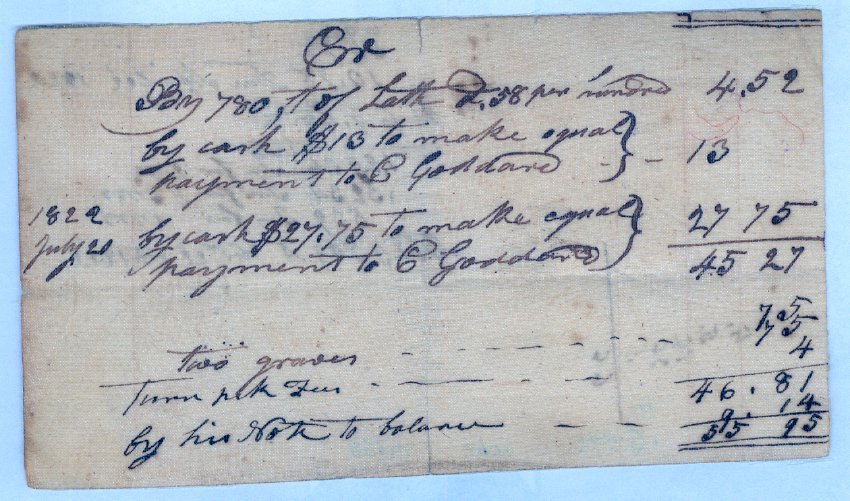 Cr
By 780 ft of Lath D.58 per hundred 4.52
by cash $13 to make equal
payment to C Goddard - - 13
1822
July 20
by cash $27.75 to make equal 27 75
payment to C Goddard 45 27
75
75
two graves - - - - - - 4
Turn Fees - - - - - 46.81
9.14
by his Note to balance - - 55 95